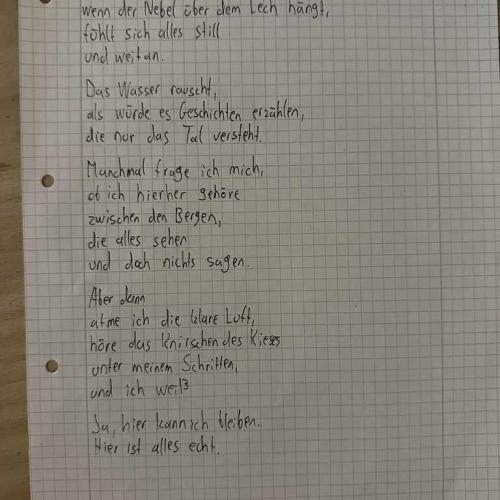 wenn der Nebel über dem Lech hängt,
fühlt sich alles still
und weit an.
Das Wasser rauscht,
als würde es Geschichten erzählen,
die nur das Tal versteht.
Manchmal frage ich mich,
ob ich hierher gehöre
zwischen den Bergen,
die alles sehen
und doch nichts sagen.
Aber dann
atme ich die klare Luft,
höre das Knirschen des Kieses
unter meinem Schritten,
und ich weiß
Ja, hier kann ich bleiben.
Hier ist alles echt.